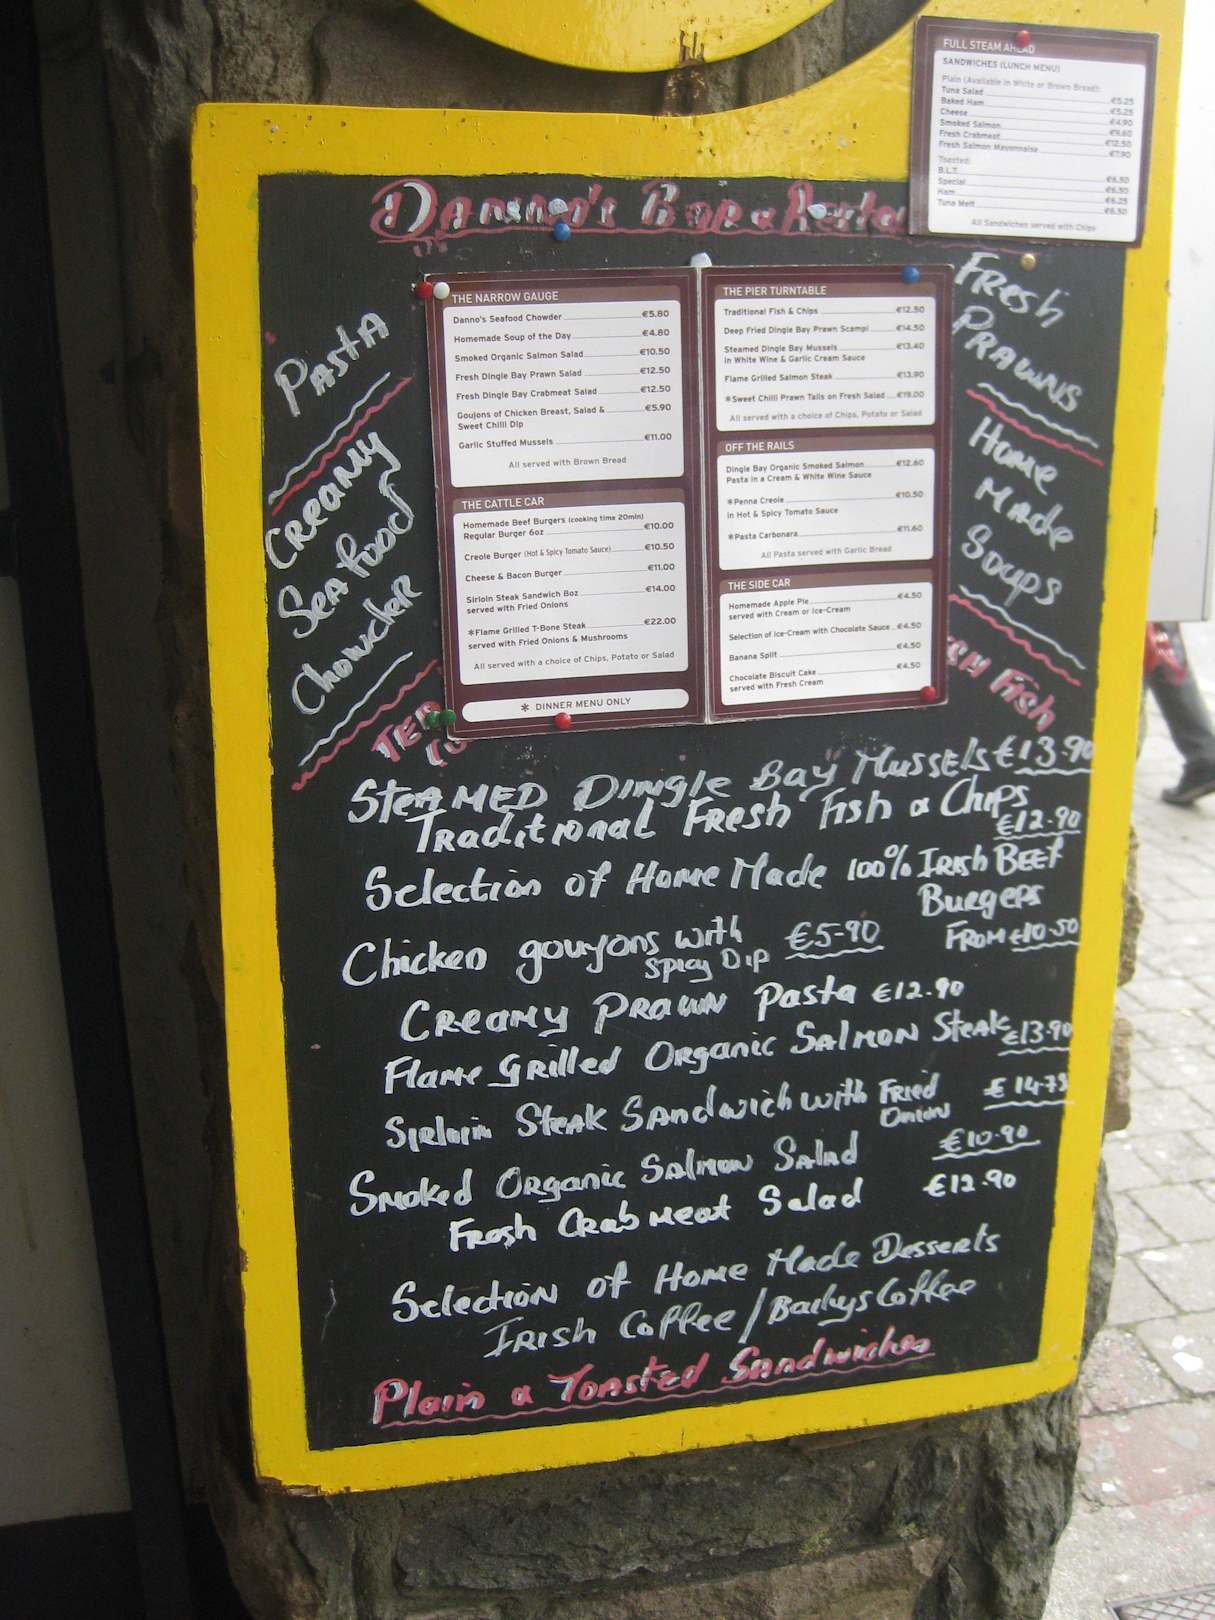 FULL STEAM AHEAD
SANDWICHES (LUNCH MENU)
Plain (Available in White or Brown Bread):
Tuna Salad €5.25
Baked Ham €5.25
Cheese €4.90
Smoked Salmon €9.60
Fresh Crabmeat €12.50
Fresh Salmon Mayonnaise €7.90
Toasted:
B.L.T. €6.50
Special €6.50
Ham €6.25
Tuna Melt €6.50
All Sandwiches served with Chips
Danno's Bar & Resta
Pasta
Creamy
Seafood
Chowder
THE NARROW GAUGE
Danno's Seafood Chowder €5.80
Homemade Soup of the Day €4.80
Smoked Organic Salmon Salad €10.50
Fresh Dingle Bay Prawn Salad €12.50
Fresh Dingle Bay Crabmeat Salad €12.50
Goujons of Chicken Breast, Salad & €5.90
Sweet Chilli Dip
Garlic Stuffed Mussels €11.00
All served with Brown Bread
THE CATTLE CAR
Homemade Beef Burgers (cooking time 20min)
Regular Burger 6oz €10.00
Creole Burger (Hot & Spicy Tomato Sauce) €10.50
Cheese & Bacon Burger €11.00
Sirloin Steak Sandwich 8oz €14.00
served with Fried Onions
*Flame Grilled T-Bone Steak €22.00
served with Fried Onions & Mushrooms
All served with a choice of Chips, Potato or Salad
* DINNER MENU ONLY
THE PIER TURNTABLE
Traditional Fish & Chips €12.50
Deep Fried Dingle Bay Prawn Scampi €14.50
Steamed Dingle Bay Mussels €13.40
in White Wine & Garlic Cream Sauce
Flame Grilled Salmon Steak €13.90
*Sweet Chilli Prawn Tails on Fresh Salad €19.00
All served with a choice of Chips, Potato or Salad
OFF THE RAILS
Dingle Bay Organic Smoked Salmon €12.60
Pasta in a Cream & White Wine Sauce
*Penna Creole €10.50
in Hot & Spicy Tomato Sauce
*Pasta Carbonara €11.60
All Pasta served with Garlic Bread
THE SIDE CAR
Homemade Apple Pie €4.50
served with Cream or Ice-Cream
Selection of Ice-Cream with Chocolate Sauce €4.50
Banana Split €4.50
Chocolate Biscuit Cake €4.50
served with Fresh Cream
Fresh
Prawns
Home
Made
Soups
Fish
Steamed Dingle Bay Mussels €13.90
Traditional Fresh Fish & Chips
€12.90
Selection of Home Made 100% Irish Beef
Burgers
From €10.50
Chicken goujons with €5.90
Spicy Dip
Creamy Prawn Pasta €12.90
Flame Grilled Organic Salmon Steak €13.90
Sirloin Steak Sandwich with Fried
Onion
Smoked Organic Salmon Salad €10.90
Fresh Crab Meat Salad €12.90
Selection of Home Made Desserts
Irish Coffee / Baileys Coffee
Plain & Toasted Sandwiches